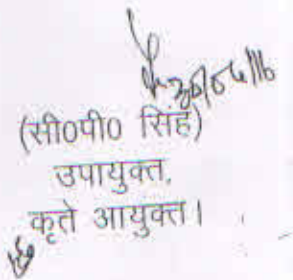 (सी0पी0 सिंह)
उपायुक्त,
कृते आयुक्त।